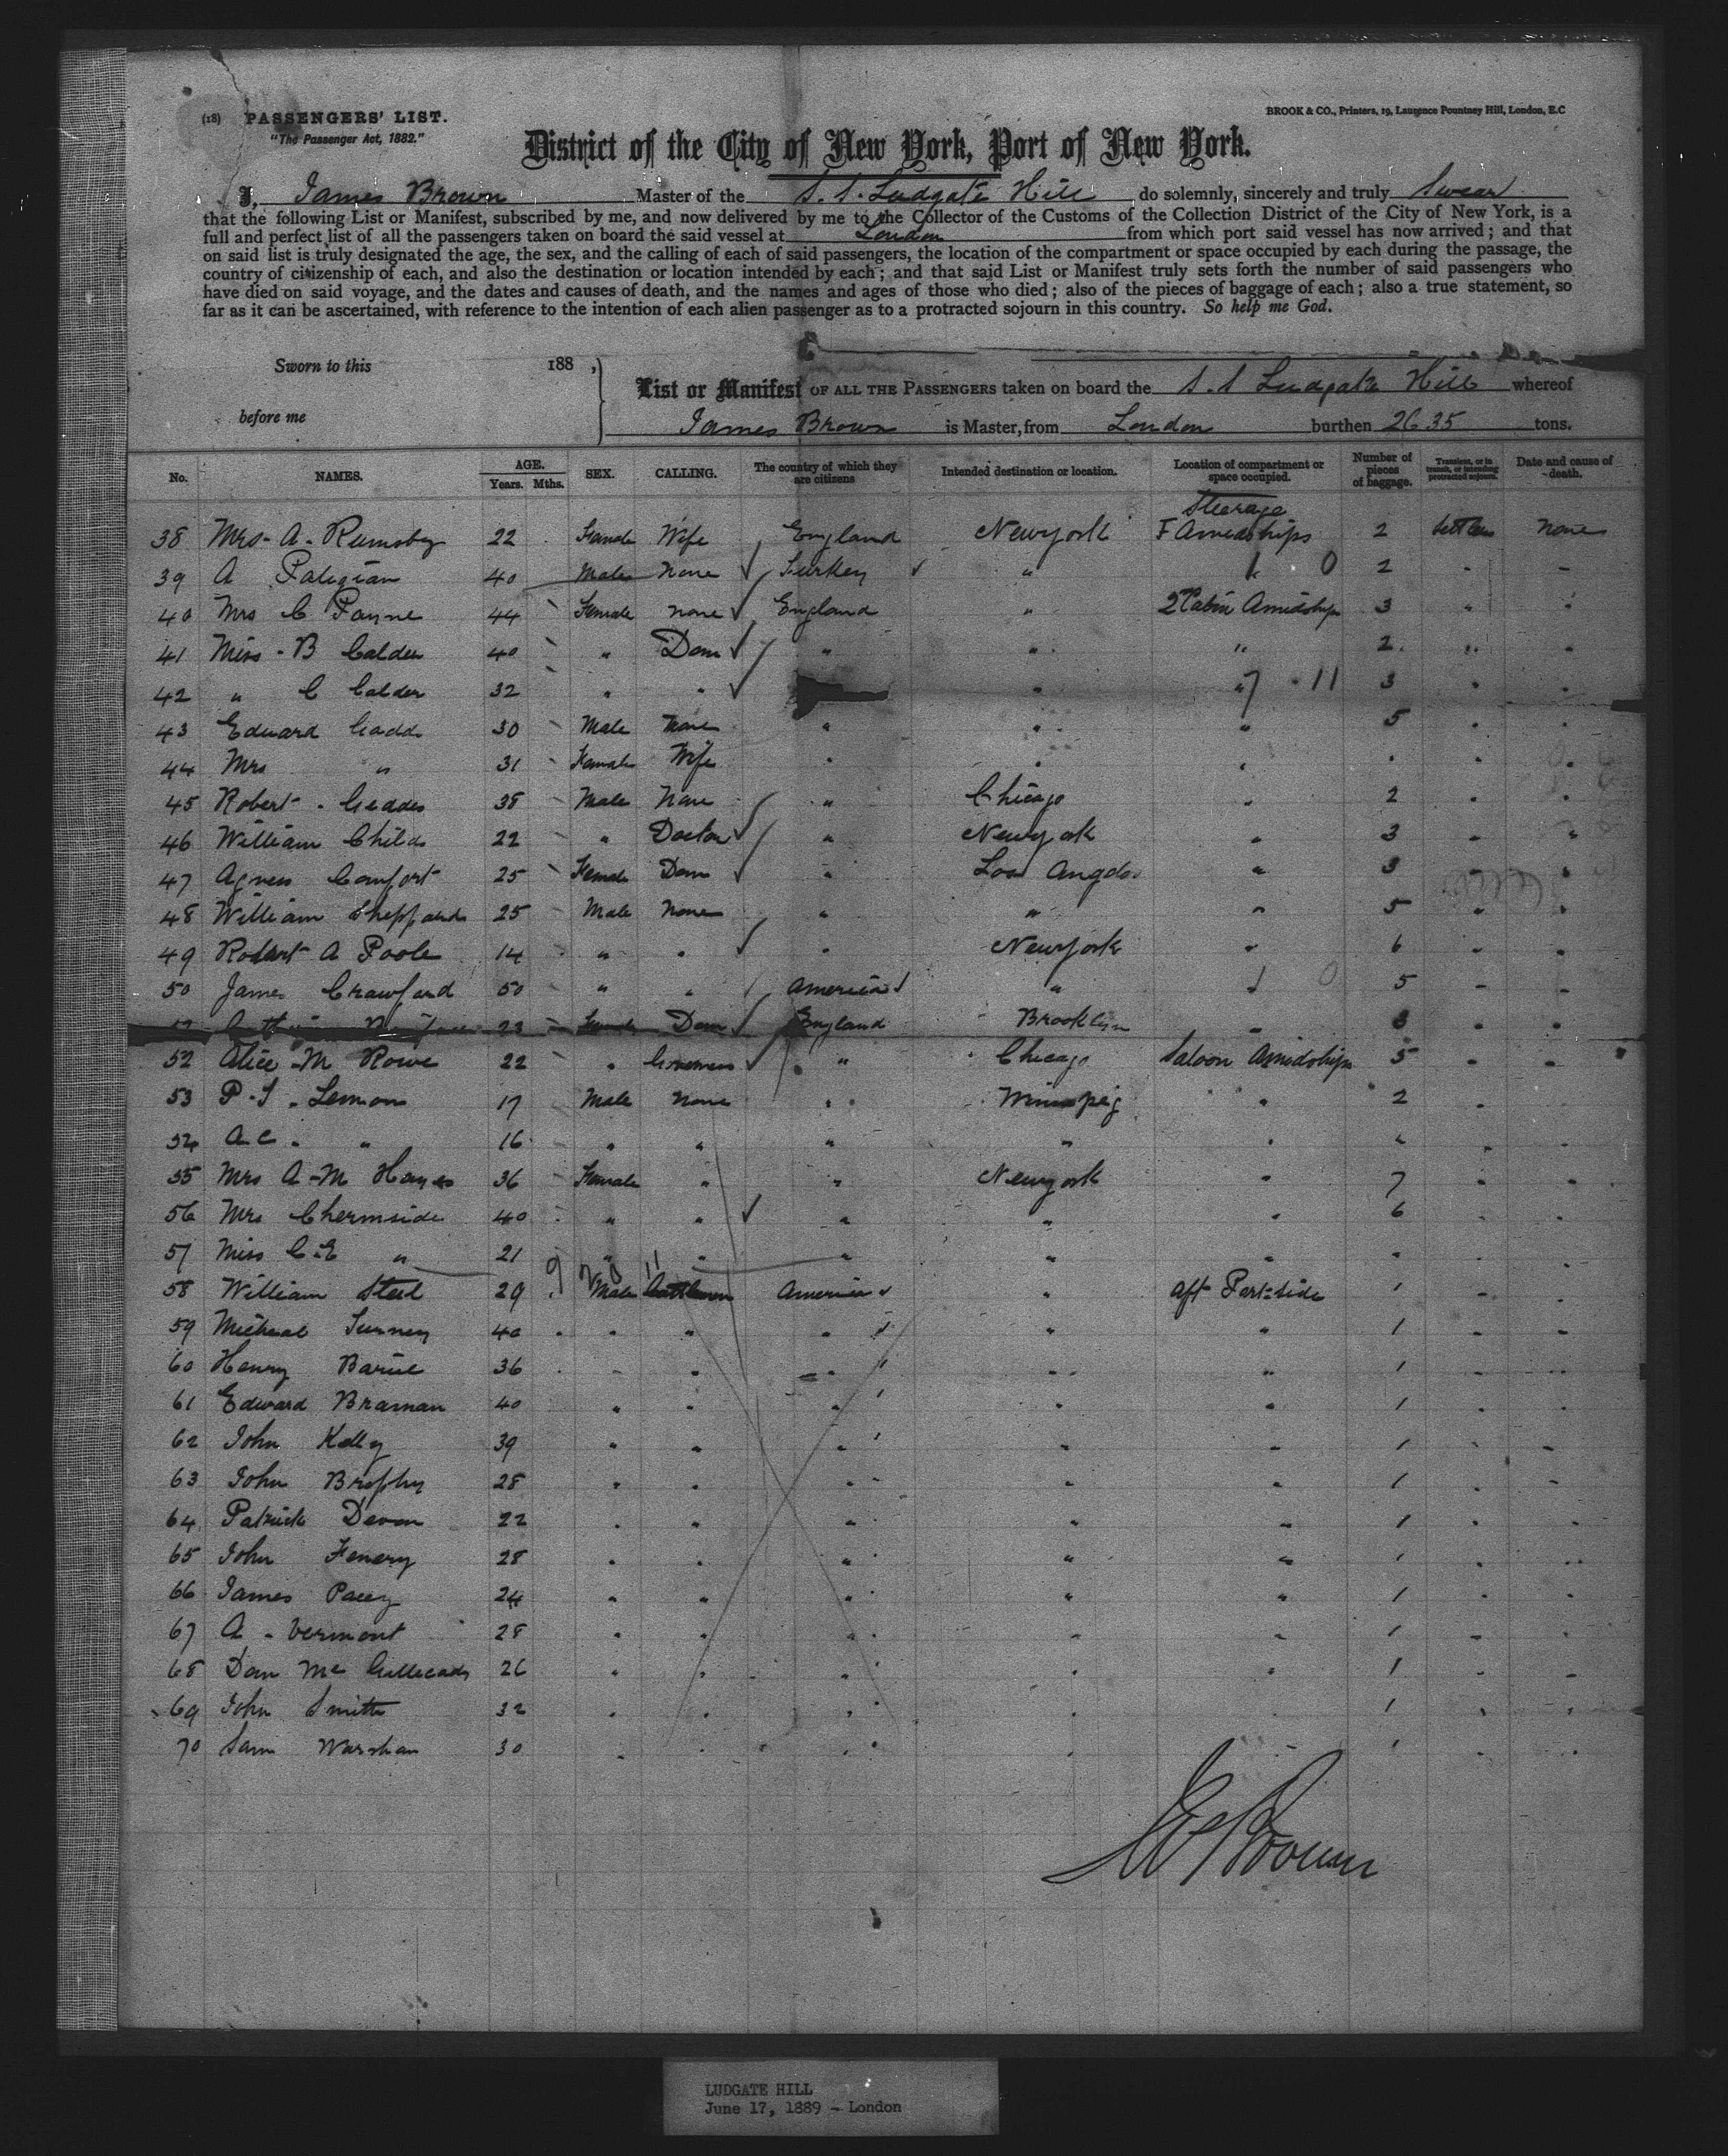 (18) PASSENGERS' LIST.
"The Passenger Act, 1882."
BROOK & CO., Printers, 19, Laurence Pountney Hill, London, E.C
District of the City of New York, Port of New York.
I, James Brown Master of the S. S. Ludgate Hill do solemnly, sincerely and truly Swear
that the following List or Manifest, subscribed by me, and now delivered by me to the Collector of the Customs of the Collection District of the City of New York, is a
full and perfect list of all the passengers taken on board the said vessel at London from which port said vessel has now arrived; and that
on said list is truly designated the age, the sex, and the calling of each of said passengers, the location of the compartment or space occupied by each during the passage, the
country of citizenship of each, and also the destination or location intended by each; and that said List or Manifest truly sets forth the number of said passengers who
have died on said voyage, and the dates and causes of death, and the names and ages of those who died; also of the pieces of baggage of each; also a true statement, so
far as it can be ascertained, with reference to the intention of each alien passenger as to a protracted sojourn in this country. So help me God.
Sworn to this 188 ,
before me
List or Manifest OF ALL THE PASSENGERS taken on board the S. S Ludgate Hill whereof
James Brown is Master, from London burthen 2635 tons.
No. NAMES. AGE. Years. Mths. SEX. CALLING. The country of which they are citizens Intended destination or location. Location of compartment or space occupied. Number of pieces of baggage. Transient, or in transit, or intending protracted sojourn. Date and cause of death.
Steerage
38 Mrs A. Rumsby 22 Female Wife England Newyork F Amidships 2 Settler None
39 A 40 Male None Turkey " 0 2
40 Mrs C Payne 44 Female None England " 2 Cabin Amidships 3 "
41 Miss B Calder 40 " Dom " " " 2 "
42 " C Calder 32 " " " " 7 . 11 3
43 Edward Gadd 30 Male None " " " 5
44 Mrs " 31 Female Wife
45 Robert Geddes 38 Male None " Chicago " 2
46 William Childs 22 " Doctor " Newyork " 3
47 Agnes Comfort 25 Female Dom " Los Angelos " 3
48 William Sheppard 25 Male None " " " 5
49 Robert A Poole 14 " " " Newyork " 6
50 James Crawford 50 " " America " 0 5
23 Female Dom England Brooklyn " 3
52 Alice M Rowe 22 " Governess " Chicago Saloon Amidships 5
53 P. S. Lemon 17 Male None " Winnipeg " 2
54 A C. " 16 " " " " "
55 Mrs A M Hayes 36 Female " " Newyork " 7
56 Mrs Chermside 40 " " " " " 6
57 Miss C. E " 21 " " " " "
58 William Steel 29 Male Cattlemen America " Aft Port side 1
59 Micheal 40 " " " " " 1
60 Henry 36 " " " " " 1
61 Edward Braman 40 " " " " " 1
62 John Kelly 39 " " " " " 1
63 John Brophy 28 " " " " " 1
64 Patrick Devon 22 " " " " " 1
65 John Fenery 28 " " " " " 1
66 James Pacey 24 " " " " " 1
67 A. Vermont 28 " " " " " 1
68 Dan Mc 26 " " " " " 1
69 John Smith 32 " " " " " 1
70 Sam 30 " " " " " 1
Brown
LUDGATE HILL
June 17, 1889 - London